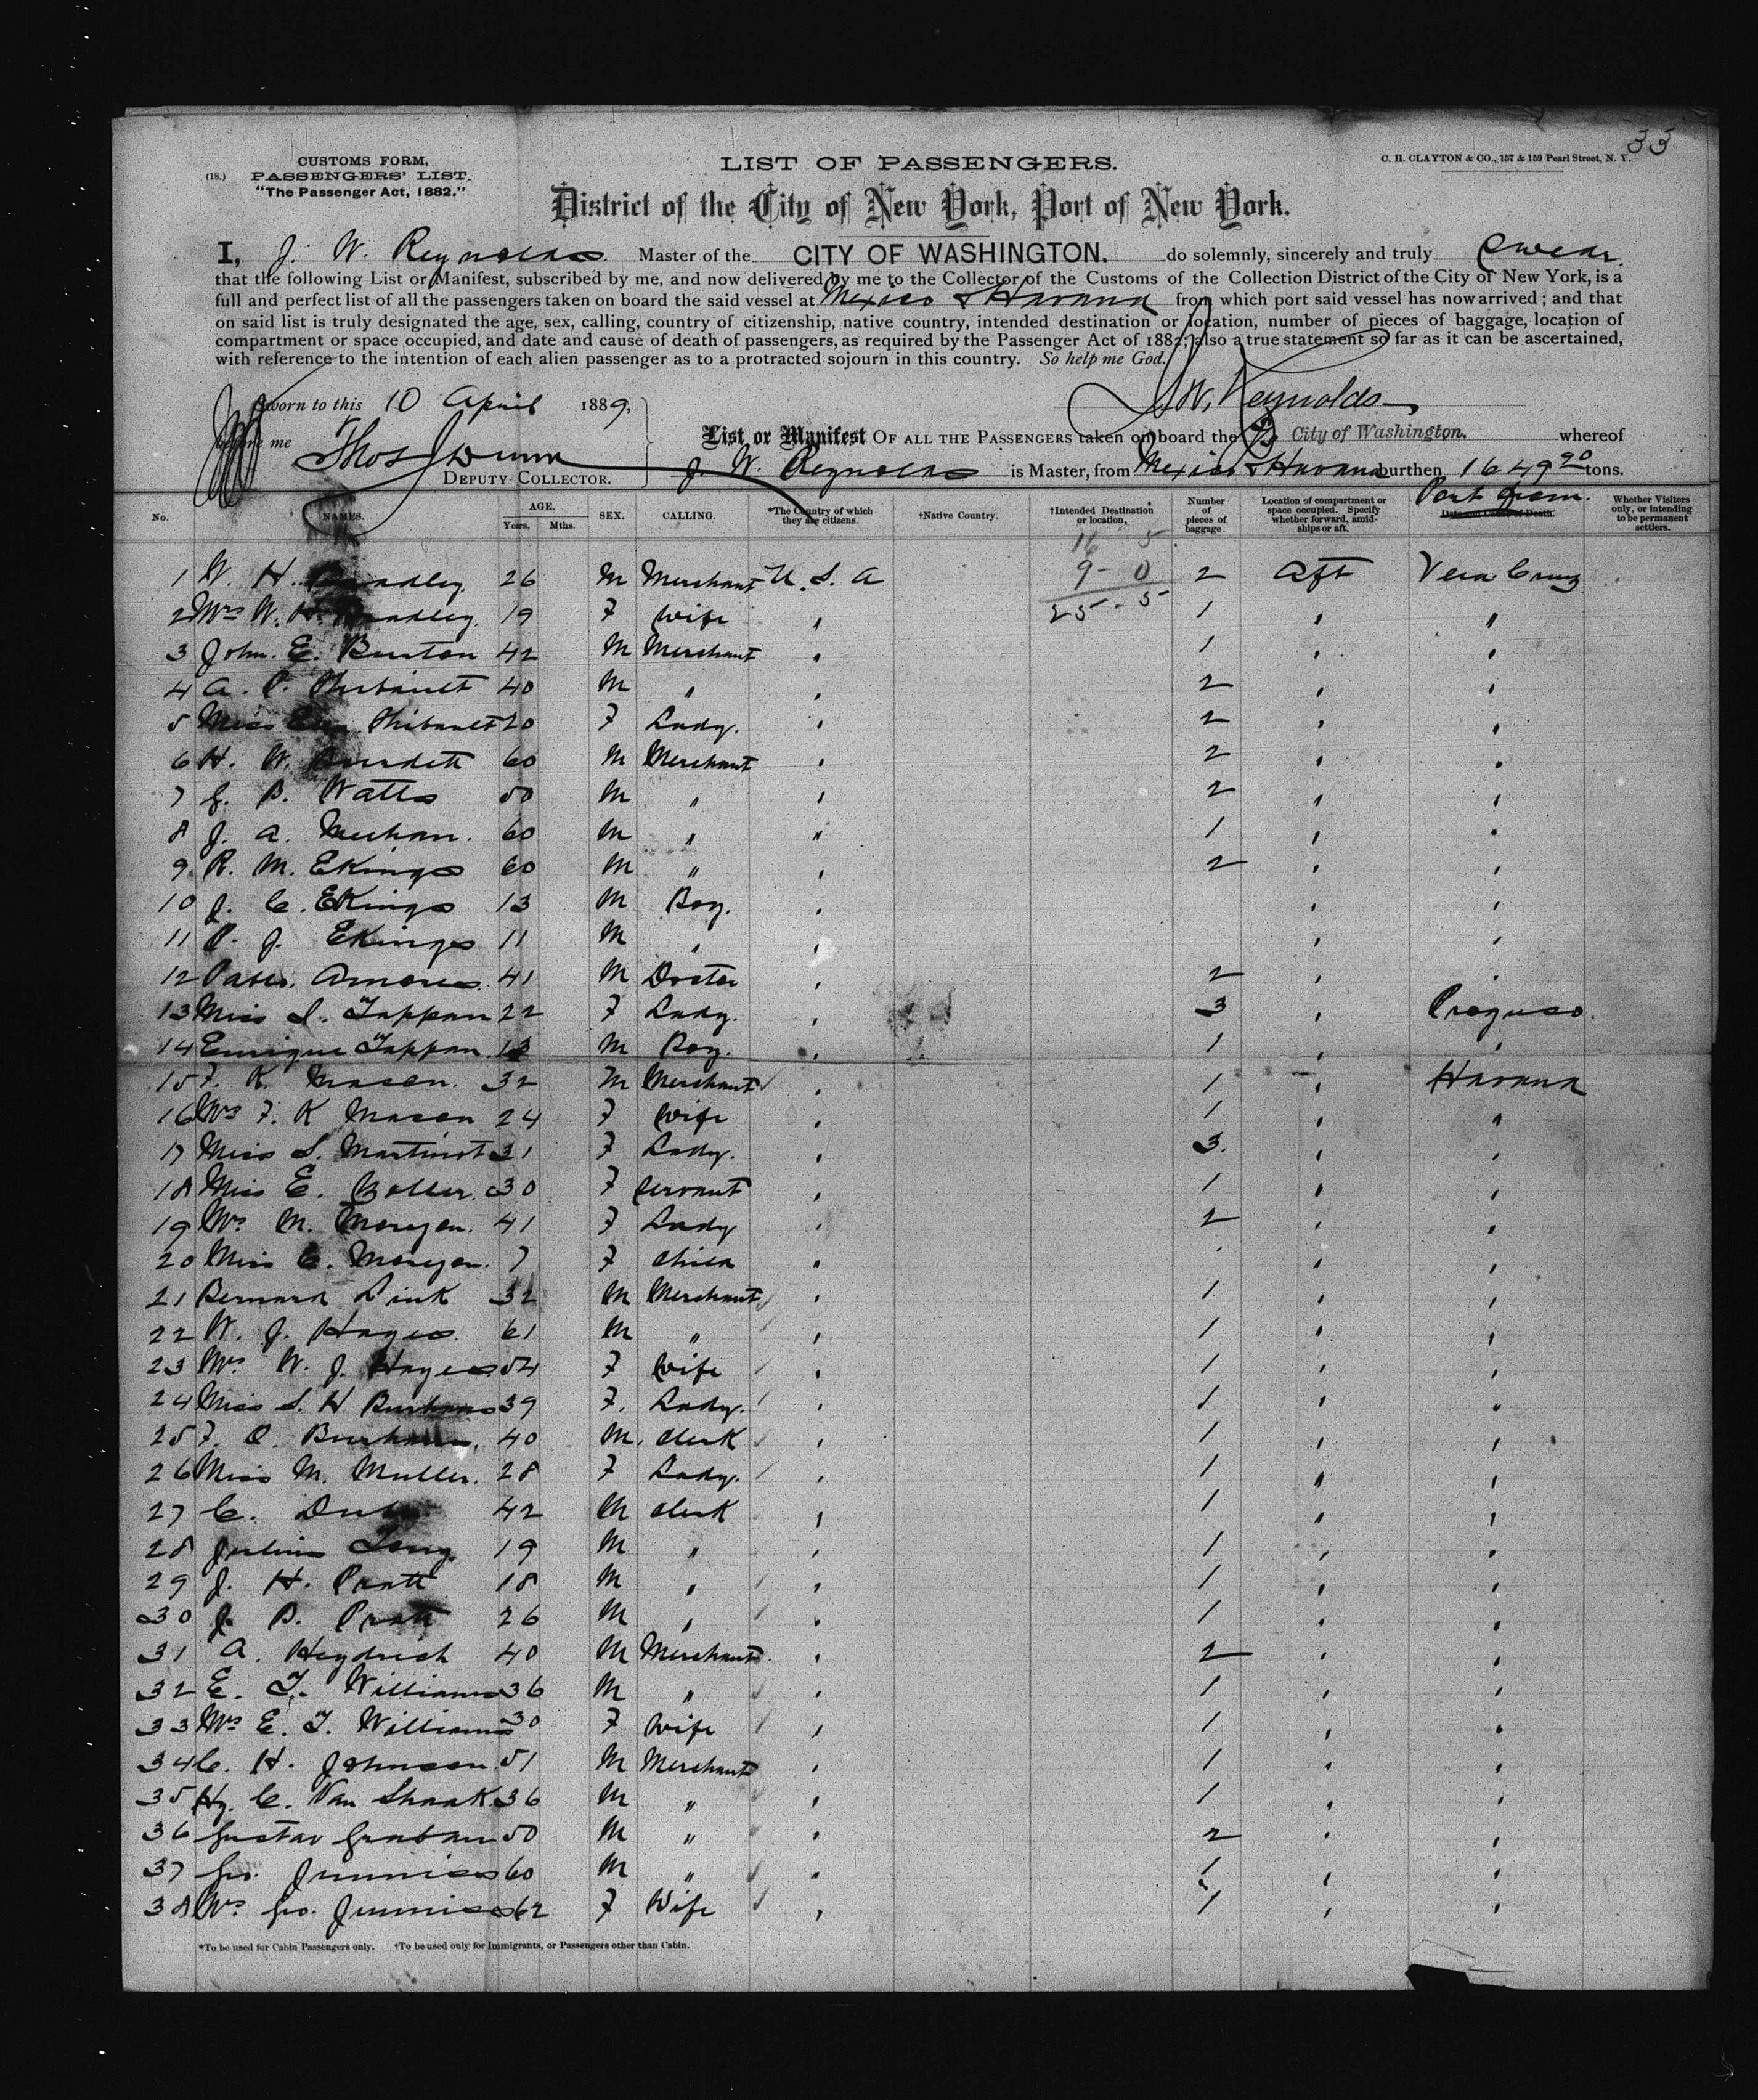 33
CUSTOMS FORM,
(18.) PASSENGERS' LIST.
"The Passenger Act, 1882."
LIST OF PASSENGERS.
C. H. CLAYTON & CO., 157 & 159 Pearl Street, N. Y.
District of the City of New York, Port of New York.
I, J. W. Reynolds Master of the CITY OF WASHINGTON. do solemnly, sincerely and truly swear
that the following List or Manifest, subscribed by me, and now delivered by me to the Collector of the Customs of the Collection District of the City of New York, is a
full and perfect list of all the passengers taken on board the said vessel at Mexico & Havana from which port said vessel has now arrived; and that
on said list is truly designated the age, sex, calling, country of citizenship, native country, intended destination or location, number of pieces of baggage, location of
compartment or space occupied, and date and cause of death of passengers, as required by the Passenger Act of 1882; also a true statement so far as it can be ascertained,
with reference to the intention of each alien passenger as to a protracted sojourn in this country. So help me God.
Sworn to this 10 April 1889, J. W. Reynolds
before me Thos J Dunn List or Manifest OF ALL THE PASSENGERS taken on board the City of Washington. whereof
DEPUTY COLLECTOR. J. W. Reynolds is Master, from Mexico & Havana burthen 1649 90 tons.
No. NAMES. AGE. Years, Mths. SEX. CALLING. *The Country of which they are citizens. †Native Country. †Intended Destination or location. Number of pieces of baggage. Location of compartment or space occupied. Specify whether forward, amidships or aft. Date and Cause of Death. Port from. Whether Visitors only, or intending to be permanent settlers.
16 5
9 - 0
25 - 5
1 W. H. Bradley 26 M Merchant U. S. A 2 Aft Vera Cruz
2 Mrs W. H. Bradley. 19 F Wife " 1 " "
3 John. E. Burton 42 M Merchant " 1 " "
4 A. P. Thibault 40 M " " 2 " "
5 Miss Thibault 20 F Lady. " 2 " "
6 H. W. Burdett 60 M Merchant " 2 " "
7 G. B. Watts 50 M " " 2 " "
8 J. A. Meehan. 60 M " " 1 " "
9 R. M. Ekings 60 M " " 2 " "
10 J. C. Ekings 13 M Boy. " " "
11 P. J. Ekings 11 M " " " "
12 Pablo Amores 41 M Doctor " 2 " "
13 Miss I. Tappan 22 F Lady. " 3 " Progreso
14 Enrique Tappan. 13 M Boy. " 1 " "
15 F. K. Mason. 32 M Merchant " 1 " Havana
16 Mrs F. K Mason 24 F Wife " 1 " "
17 Miss S. Martinot 31 F Lady. " 3. " "
18 Miss E. Boller. 30 F Servant " 1 " "
19 Mrs M. Morgan. 41 F Lady " 2 " "
20 Miss C. Morgan. 7 F Child " " "
21 Bernard Link 32 M Merchant " 1 " "
22 W. J. Hayes 61 M " " 1 " "
23 Mrs W. J. Hayes 54 F Wife " 1 " "
24 Miss S. H Burhans 39 F. Lady. " 1 " "
25 F. O. Burhans, 40 M. Clerk " 1 " "
26 Miss M. Muller. 28 F Lady. " 1 " "
27 C. 42 M Clerk " 1 " "
28 Julius 19 M " " 1 " "
29 J. H. Pratt 18 M " " 1 " "
30 J. B. Pratt 26 M " " 1 " "
31 A. Heydrich 40 M Merchant " 2 " "
32 E. T. Williams 36 M " " 1 " "
33 Mrs E. T. Williams 30 F Wife " 1 " "
34 C. H. Johnson. 51 M Merchant " 1 " "
35 Hy. C. Van Shaak 36 M " " 1 " "
36 Gustav Graban 50 M " " 2 " "
37 Geo. Jennison 60 M " " 1 " "
38 Mrs Geo. Jennison 62 F Wife " 1 " "
*To be used for Cabin Passengers only. †To be used only for Immigrants, or Passengers other than Cabin.